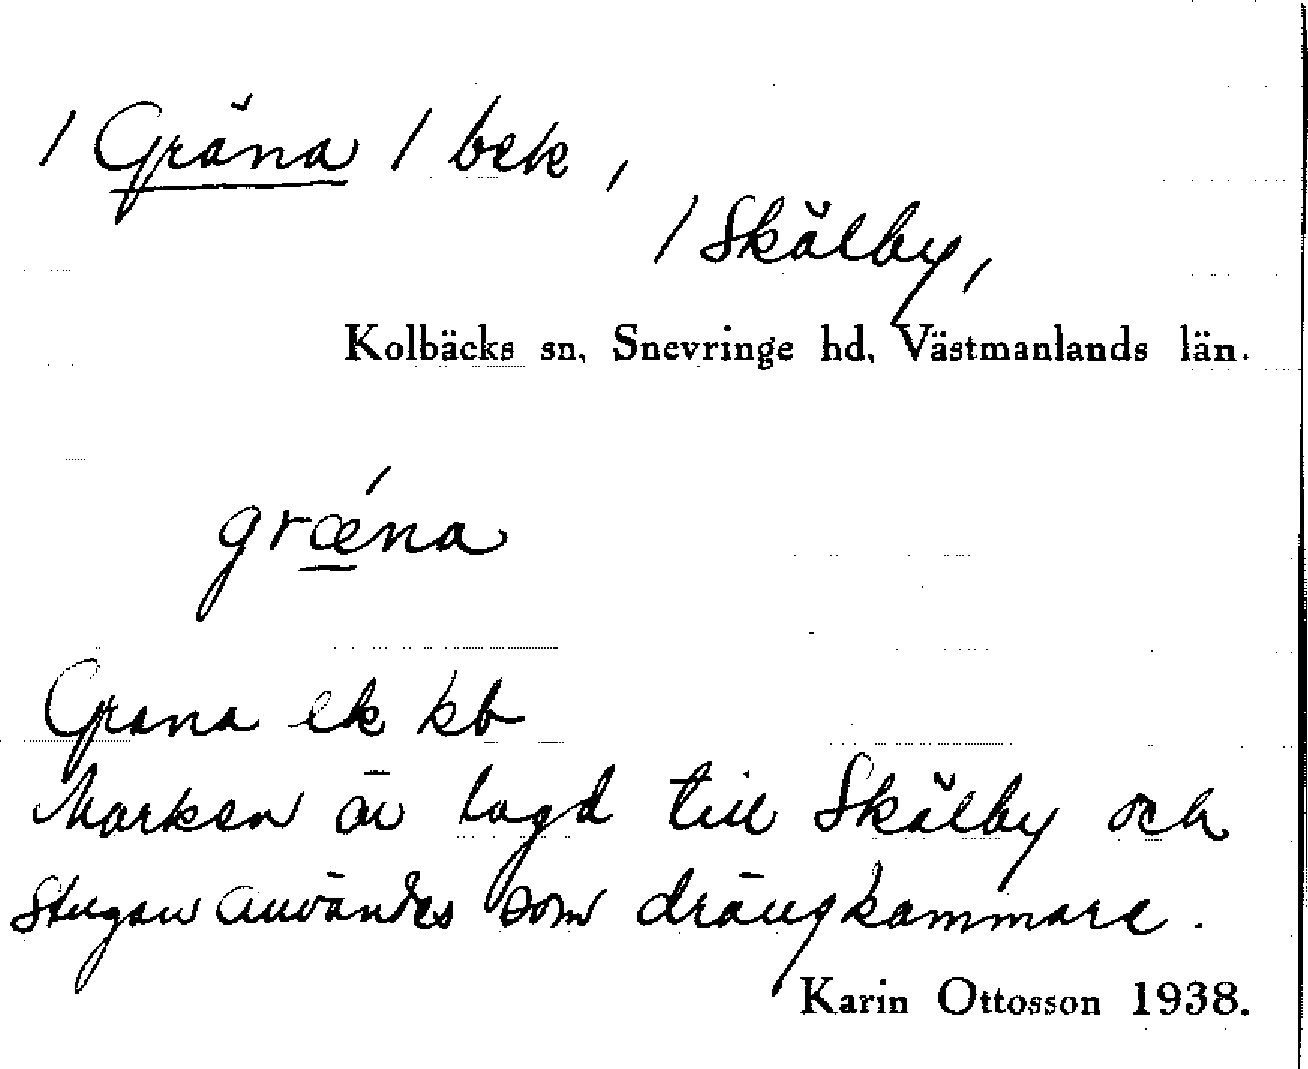 / Gräna / bek,
/ Skälby,
Kolbäcks sn, Snevringe hd, Västmanlands län.
grǽna
Grana ek kb
Marken är lagd till Skälby och
stugan användes som drängkammare.
Karin Ottosson 1938.